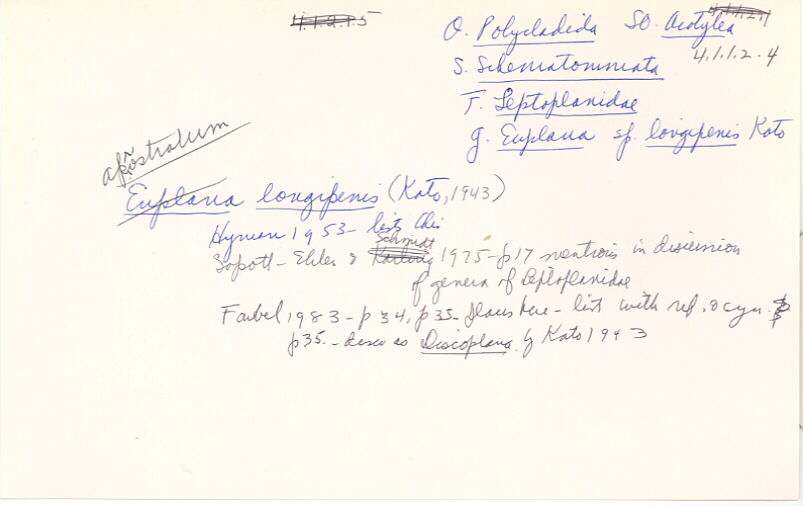 O. Polycladida SO. Acotylea
4.1.1.2.4
S. Schematommata
F. Leptoplanidae
g. Euplana sp. longipenis Kato
Euplana longipenis (Kato, 1943)
Hyman 1953 - lists this
Sopott-Ehlers & Schmidt 1975 - p17 mentions in discussion
of genera of Leptoplanidae
Faubel 1983 - p34, p35 - places here - list with ref. & syn.
p35. - desc as Discoplana by Kato 1943